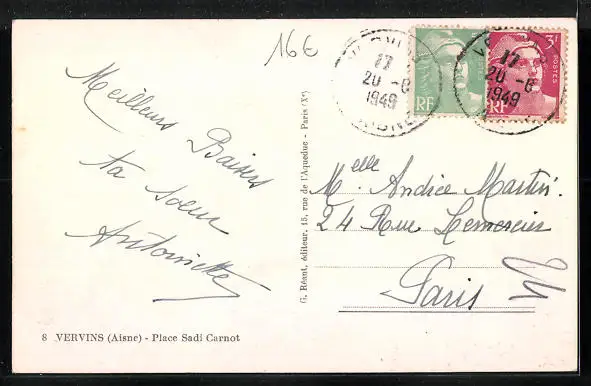 16€
VERVINS
17
20-6
1949
AISNE
RF
VERVINS
17
20-6
1949
3F
POSTES
RF
Meilleurs Baisers
ta soeur
Antoinette
G. Réant, éditeur, 15, rue de l'Aqueduc - Paris (Xe)
Melle. Andrée Martin.
24 Rue Lemercier
Paris
8 VERVINS (Aisne) - Place Sadi Carnot